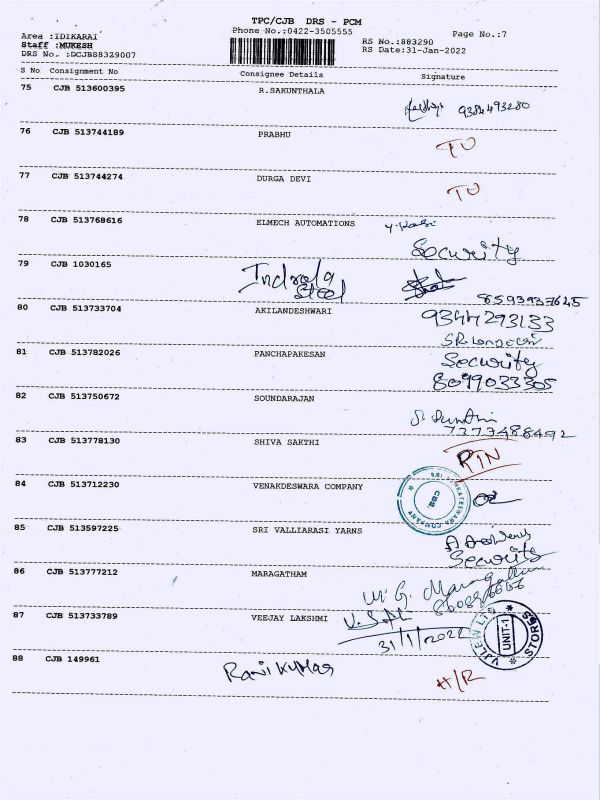 TPC/CJB DRS - PCM
Phone No.:0422-3505555
Page No.:7
Area :IDIKARAI
Staff :MUKESH
DRS No. :DCJB88329007
RS No.:883290
RS Date:31-Jan-2022
S No Consignment No Consignee Details Signature
75 CJB 513600395 R.SAKUNTHALA
9384493280
76 CJB 513744189 PRABHU
TU
77 CJB 513744274 DURGA DEVI
TU
78 CJB 513768616 ELMECH AUTOMATIONS
Security
79 CJB 1030165
Steel
8593937645
80 CJB 513733704 AKILANDESHWARI
9344293133
81 CJB 513782026 PANCHAPAKESAN
Security
8099033305
82 CJB 513750672 SOUNDARAJAN
7373488492
83 CJB 513778130 SHIVA SAKTHI
RTN
84 CJB 513712230 VENAKDESWARA COMPANY
CBE
85 CJB 513597225 SRI VALLIARASI YARNS
Security
86 CJB 513777212 MARAGATHAM
87 CJB 513733789 VEEJAY LAKSHMI
31/1/2022
UNIT-1
STORES
88 CJB 149961
Ravi Kumar
H/R